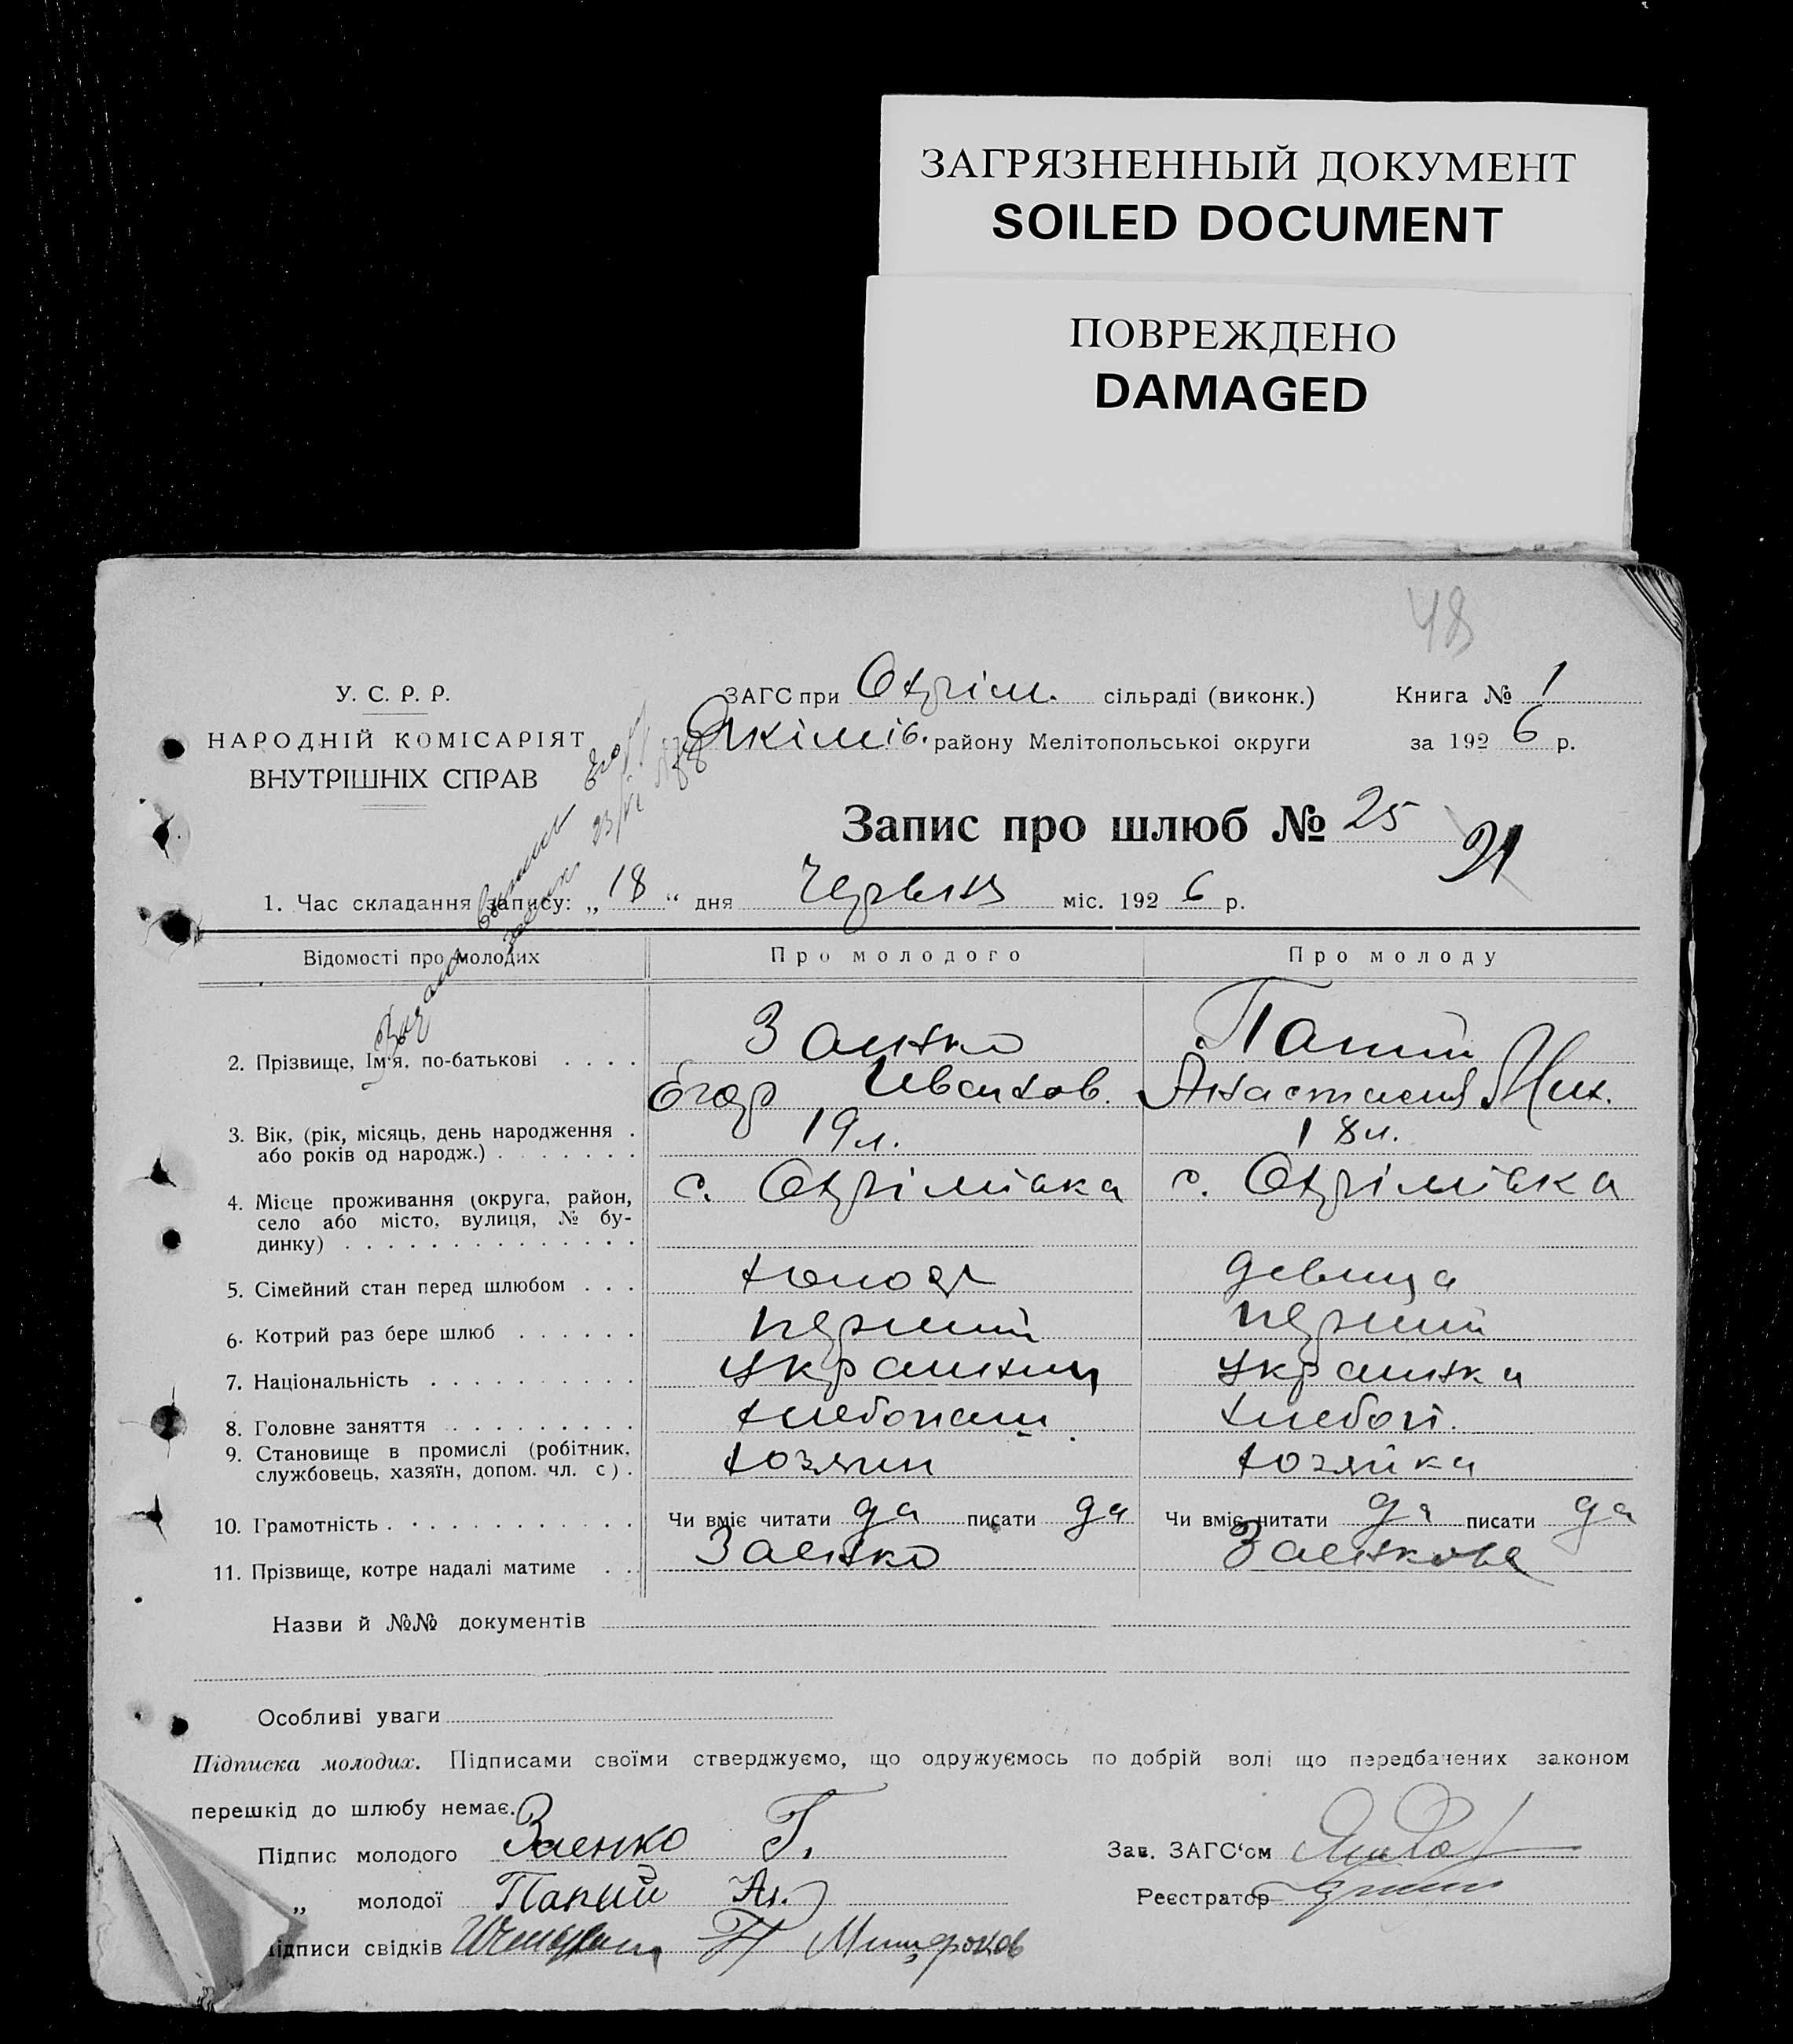 ЗАГРЯЗНЕННЫЙ ДОКУМЕНТ
SOILED DOCUMENT
ПОВРЕЖДЕНО
DAMAGED
48
У. С. Р. Р.
НАРОДНІЙ КОМІСАРІЯТ
ВНУТРІШНІХ СПРАВ
ЗАГС при Охрім. сільраді (виконк.) Книга № 1
Якімів. району Мелітопольської округи за 1926 р.
Запис про шлюб № 25
21
1. Час складання запису: „18“ дня Червня міс. 1926 р.
Відомості про молодих Про молодого Про молоду
2. Прізвище, Ім'я, по-батькові Заенко Папий
Егор Иванов. Анастасия Мих.
3. Вік, (рік, місяць, день народження або років од народж.) 19 л. 18 л.
4. Місце проживання (округа, район, с. Охрімівка с. Охрімівка
село або місто, вулиця, № бу-
динку)
5. Сімейний стан перед шлюбом холост девица
6. Котрий раз бере шлюб перший перший
7. Національність украинец украинка
8. Головне заняття хлебопаш. хлебоп.
9. Становище в промислі (робітник,
службовець, хазяїн, допом. чл. с.) хозяин хозяйка
10. Грамотність Чи вміє читати да писати да Чи вміє читати да писати да
11. Прізвище, котре надалі матиме Заенко Заенкова
Назви й №№ документів
Особливі уваги
Підписка молодих. Підписами своїми стверджуємо, що одружуємось по добрій волі що передбачених законом
перешкід до шлюбу немає.
Підпис молодого Заенко Г. Зав. ЗАГС‘ом
„ молодої Папий Ан. Реєстратор
ідписи свідків